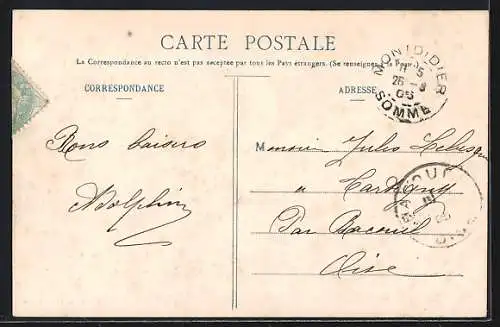 CARTE POSTALE
La Correspondance au recto n'est pas acceptée par tous les Pays étrangers. (Se renseigner à la Poste)
CORRESPONDANCE
ADRESSE
MONTDIDIER
11 15
26 - 8
05
SOMME
Bons baisers
Adolphine
Monsieur Jules
a
Par
Oise
OISE